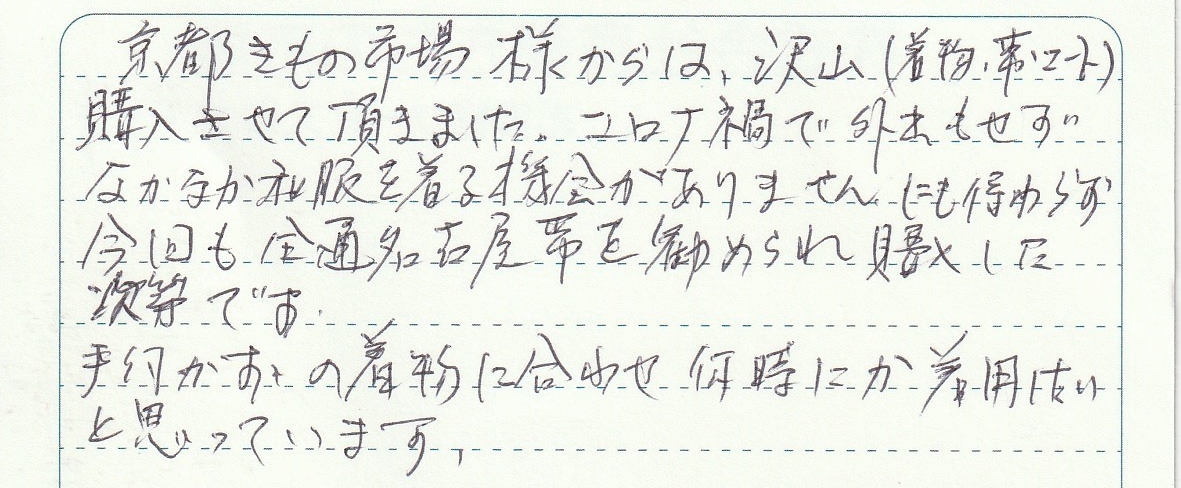 京都きもの市場 様からは、沢山(着物、帯、コート)
購入させて頂きました。コロナ禍で外出もせず
なかなか和服を着る機会がありません。にも係わらず
今回も全通名古屋帯を勧められ購入した
次第です。
手付かずの着物に合わせ何時にか着用したい
と思っています。